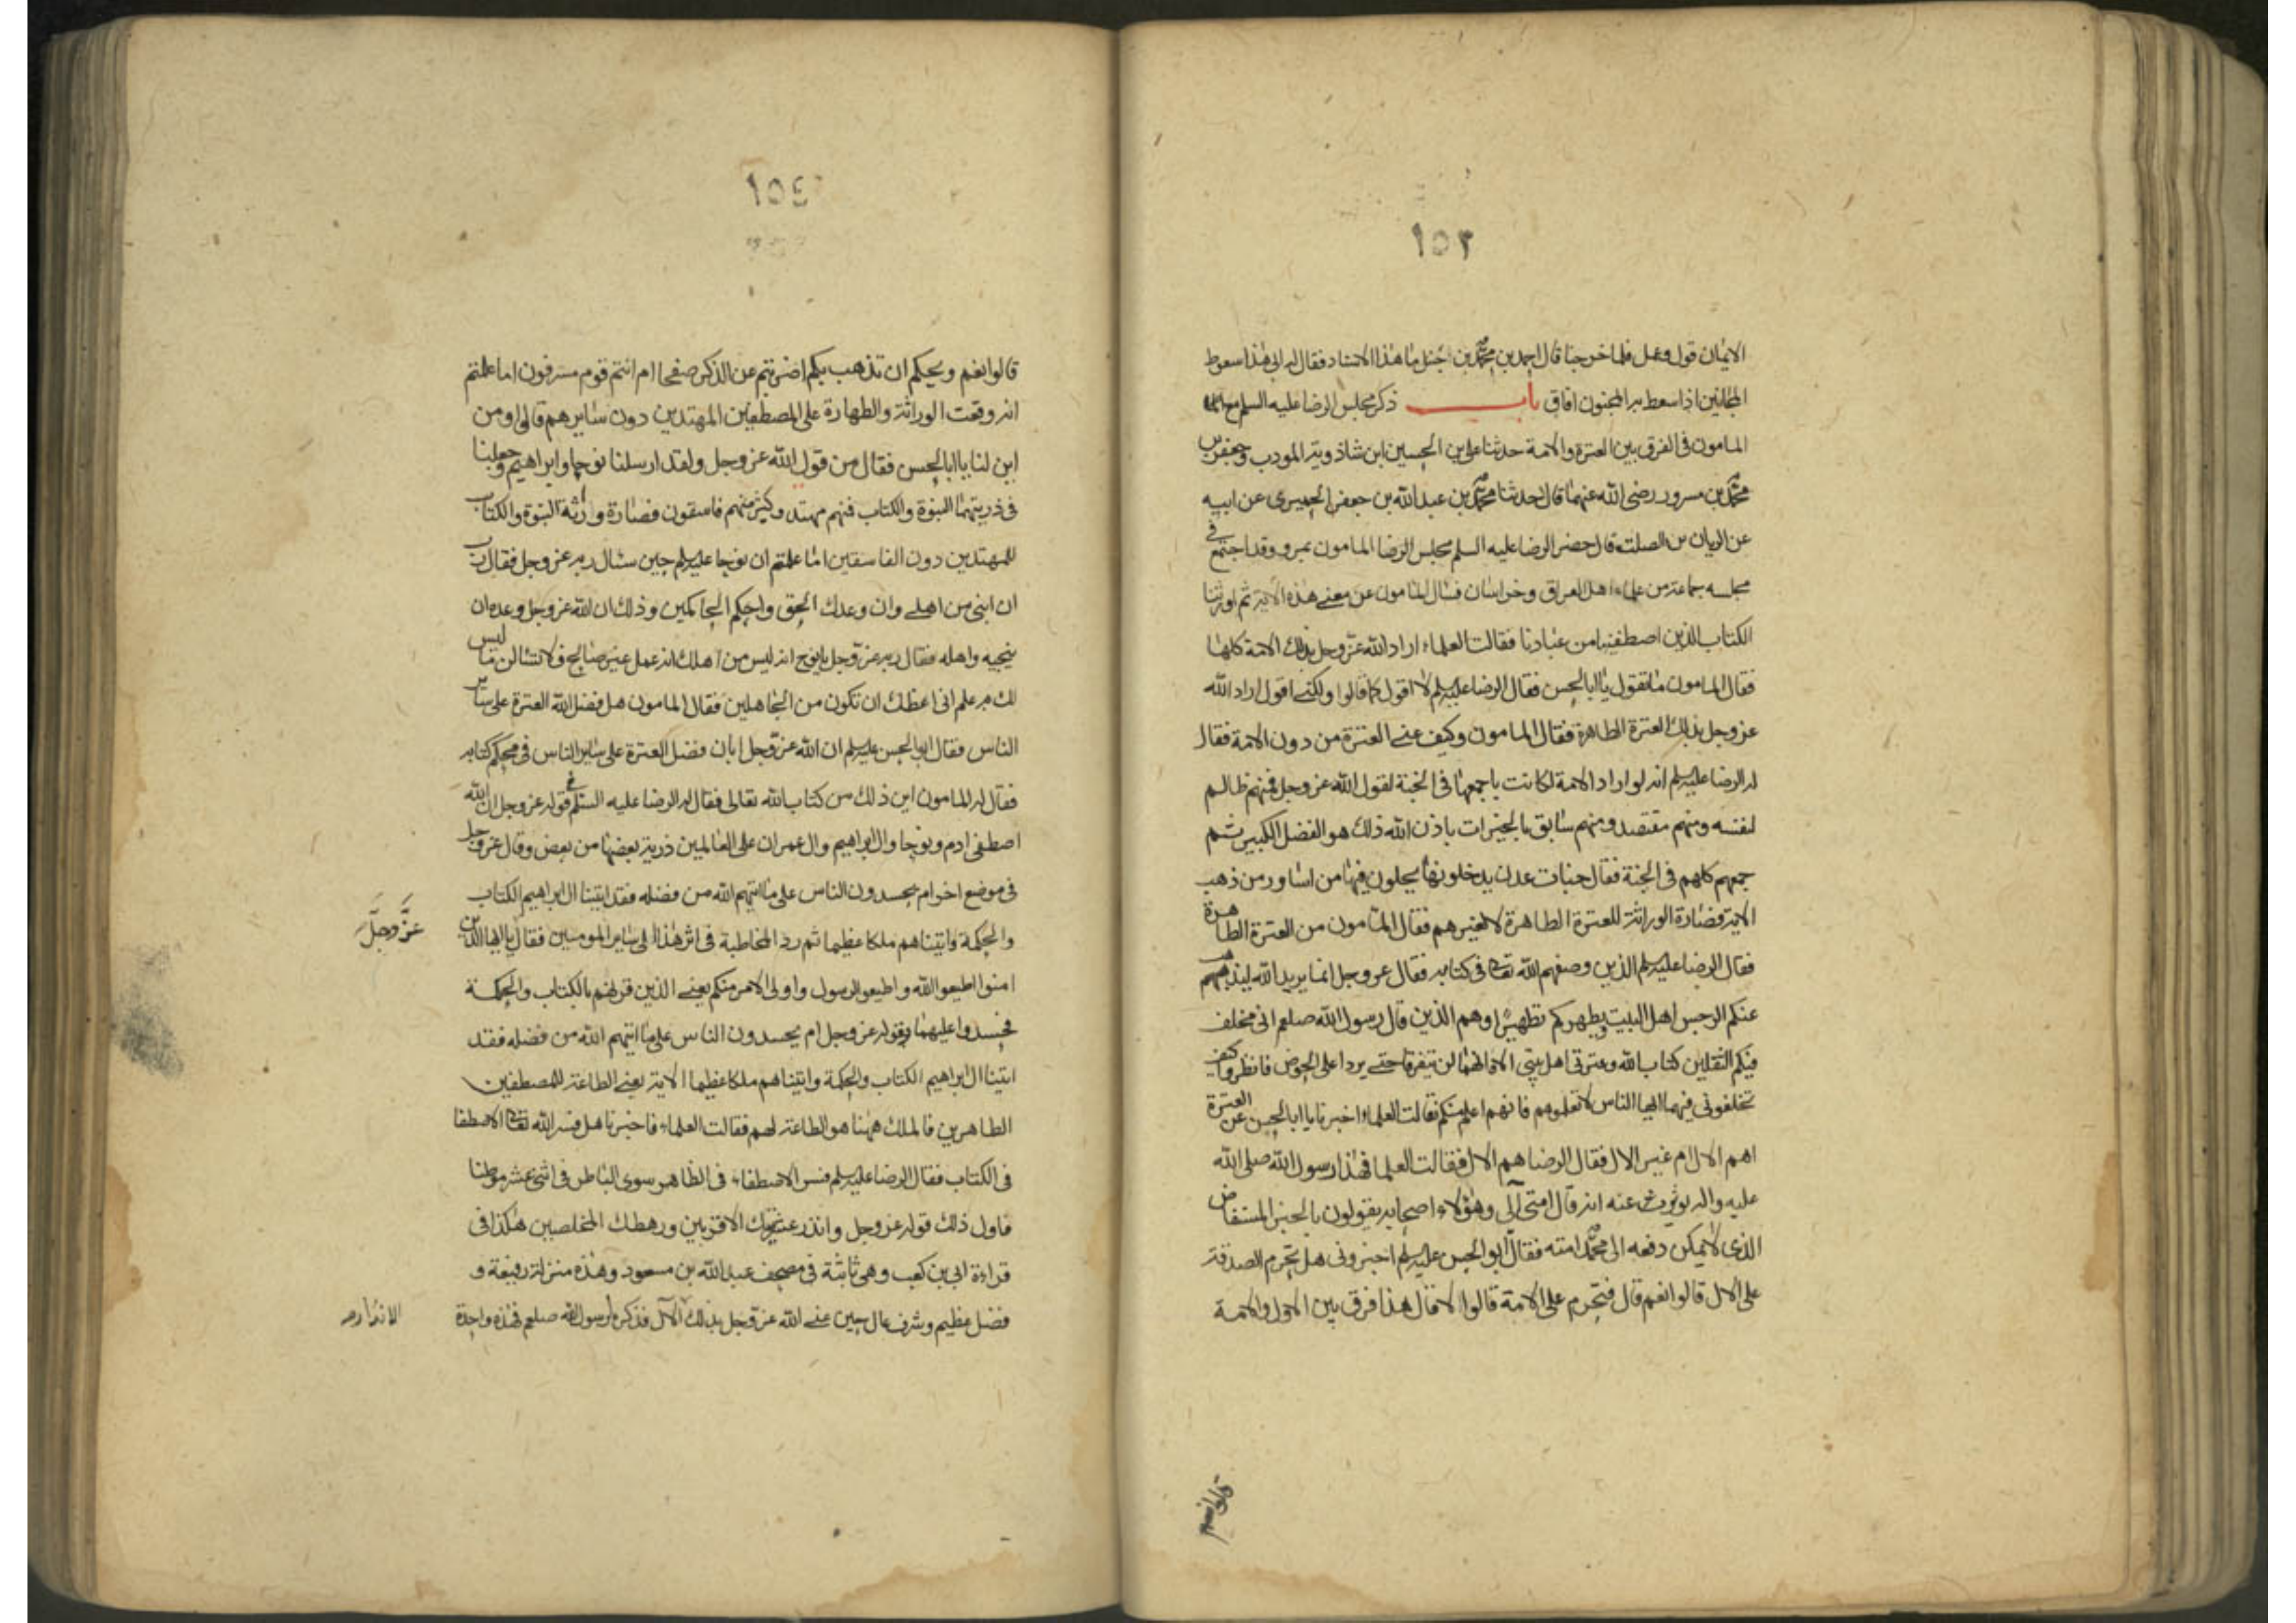 ١٥٣
الايمان قول وعمل فلما خرجنا قال احمد بن محمد بن حنبل ما هذا الاسناد فقال له ابى هذا سعوط
المجانين اذا سعط به المجنون افاق باب ذكر مجلس الرضا عليه السلم مع
المامون فى الفرق بين العترة والامة حدثنا على بن الحسين ابن شاذويه المودب وجعفر بن
محمد بن مسرور رضى الله عنهما قال حدثنا محمد بن عبد الله بن جعفر الحميرى عن ابيه
عن الريان بن الصلت قال حضر الرضا عليه السلم مجلس الرضا المامون بمرو وقد اجتمع فى
مجلسه جماعة من علماء اهل العراق وخراسان فسال المامون عن معنى هذه الاية ثم اورثنا
الكتاب الذين اصطفينا من عبادنا فقالت العلماء اراد الله عز وجل بذلك الامة كلها
فقال المامون ما تقول يا ابا الحسن فقال الرضا عليه السلم لا اقول كما قالوا ولكنى اقول اراد الله
عز وجل بذلك العترة الطاهرة فقال المامون وكيف عنى العترة من دون الامة فقال
له الرضا عليه السلم انه لو اراد الامة لكانت باجمعها فى الجنة لقول الله عز وجل فمنهم ظالم
لنفسه ومنهم مقتصد ومنهم سابق بالخيرات باذن الله ذلك هو الفضل الكبير ثم
جمعهم كلهم فى الجنة فقال جنات عدن يدخلونها يحلون فيها من اساور من ذهب
الاية فصارة الوراثة للعترة الطاهرة لا لغيرهم فقال المامون من العترة الطاهرة
فقال الرضا عليه السلم الذين وصفهم الله تعالى فى كتابه فقال عز وجل انما يريد الله ليذهب
عنكم الرجس اهل البيت ويطهركم تطهيرا وهم الذين قال رسول الله صلعم انى مخلف
فيكم الثقلين كتاب الله وعترتى اهل بيتى الا وانهما لن يتفرقا حتى يردا على الحوض فانظروا كيف
تخلفونى فيهما ايها الناس لا تعلموهم فانهم اعلم منكم فقالت العلماء اخبرنا يا ابا الحسن عن العترة
اهم الال ام غير الال فقال الرضا هم الال فقالت العلما فهذا رسول الله صلى الله
عليه واله يوثر عنه انه قال امتى آلى وهؤلاء اصحابه يقولون بالخبر المستفاض
الذى لا يمكن دفعه ال محمد امته فقال ابو الحسن عليه السلم اخبرونى هل تحرم الصدقة
على الال قالوا نعم قال فتحرم على الامة قالوا لا قال هذا فرق بين الال والامة
قالوا نعم
١٥٤
قالوا نعم ويحكم ان تذهب بكم اضربتم عن الذكر صفحا ام انتم قوم مسرفون اما علمتم
انه وقعت الوراثة والطهارة على المصطفين المهتدين دون سايرهم قالوا ومن
اين لنا يا ابا الحسن فقال من قول الله عز وجل ولقد ارسلنا نوحا وابراهيم وجعلنا
فى ذريتهما النبوة والكتاب فمنهم مهتد وكثير منهم فاسقون فصارة وراثة النبوة والكتاب
للمهتدين دون الفاسقين اما علمتم ان نوحا عليه السلم حين سئال ربه عز وجل فقال رب
ان ابنى من اهلى وان وعدك الحق واحكم الحاكمين وذلك ان الله عز وجل وعده ان
ينجيه واهله فقال ربه عز وجل يا نوح انه ليس من اهلك انه عمل غير صالح فلا تسئالن ما ليس
لك به علم انى اعظك ان تكون من الجاهلين فقال المامون هل فضل الله العترة على ساير
الناس فقال ابو الحسن عليه السلم ان الله عز وجل ابان فضل العترة على ساير الناس فى محكم كتابه
فقال له المامون اين ذلك من كتاب الله تعالى فقال له الرضا عليه السلم فى قوله عز وجل ان الله
اصطفى ادم ونوحا وال ابراهيم وال عمران على العالمين ذرية بعضها من بعض وقال عز وجل
فى موضع اخر ام يحسدون الناس على ما اتيهم الله من فضله فقد اتينا ال ابراهيم الكتاب
والحكمة واتيناهم ملكا عظيما ثم رد المخاطبة فى اثر هذا الى ساير المومنين فقال يا ايها الذين
عَزَّ وجَلَّ
امنوا اطيعو الله واطيعو الرسول واولى الامر منكم يعنى الذين قرنهم بالكتاب والحكمة
فحسدوا عليهما بقوله عز وجل ام يحسدون الناس على ما اتيهم الله من فضله فقد
اتينا ال ابراهيم الكتاب والحكمة واتيناهم ملكا عظيما الاية يعنى الطاعة للمصطفين
الطاهرين فالملك ههنا هو الطاعة لهم فقالت العلماء فاخبرنا هل فسر الله تعالى الاصطفا
فى الكتاب فقال الرضا عليه السلم فسر الاصطفاء فى الظاهر سوى الباطن فى اثنى عشر موطنا
فاول ذلك قوله عز وجل وانذر عشيرتك الاقربين ورهطك المخلصين هكذا فى
قراءة ابى بن كعب وهى ثابتة فى مصحف عبد الله بن مسعود وهذه منزلة رفيعة و
فضل عظيم وشرف عال حين عنى الله عز وجل بذلك الآل فذكره لرسول الله صلعم فهذه واحدة